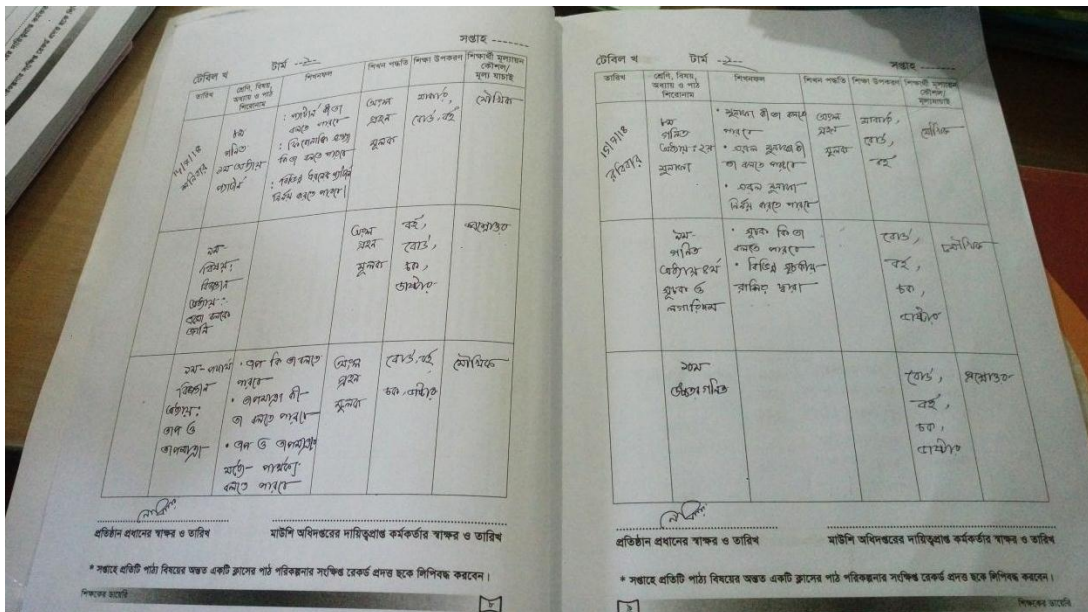 সপ্তাহ -------
টেবিল খ
টার্ম --২--
তারিখ
শ্রেণি, বিষয়,
অধ্যায় ও পাঠ
শিরোনাম
শিখনফল
শিখন পদ্ধতি
শিক্ষা উপকরণ
শিক্ষার্থী মূল্যায়ন
কৌশল/
মূল্য যাচাই
১৪/৭/১৮
শনিবার
৮ম
গণিত
১ম অধ্যায়
প্যাটার্ন
: প্যাটার্ন কী তা
বলতে পারবে
নির্ণয় করতে পারবে।
অংশ
গ্রহন
মূলক
মার্কার,
বোর্ড, বই
মৌখিক
৯ম-
বিষয়:
বিজ্ঞান
অধ্যায়:
অংশ
গ্রহন
মূলক
বই,
বোর্ড,
চক,
ডাস্টার
প্রশ্নোত্তর
৯ম- পদার্থ
বিজ্ঞান
অধ্যায়:
তাপ ও
তাপমাত্রা
• তাপ কি তা বলতে
পারবে
• তাপমাত্রা কী
তা বলতে পারবে
• তাপ ও তাপমাত্রার
মধ্যে পার্থক্য
বলতে পারবে
অংশ
গ্রহন
মূলক
বোর্ড, বই
চক, ডাস্টার
মৌখিক
প্রতিষ্ঠান প্রধানের স্বাক্ষর ও তারিখ
মাউশি অধিদপ্তরের দায়িত্বপ্রাপ্ত কর্মকর্তার স্বাক্ষর ও তারিখ
* সপ্তাহে প্রতিটি পাঠ্য বিষয়ের অন্তত একটি ক্লাসের পাঠ পরিকল্পনার সংক্ষিপ্ত রেকর্ড প্রদত্ত ছকে লিপিবদ্ধ করবেন।
শিক্ষকের ডায়েরি
৮
সপ্তাহ -------
টেবিল খ
টার্ম --২--
তারিখ
শ্রেণি, বিষয়,
অধ্যায় ও পাঠ
শিরোনাম
শিখনফল
শিখন পদ্ধতি
শিক্ষা উপকরণ
শিক্ষার্থী মূল্যায়ন
কৌশল/
মূল্যযাচাই
১৫/৭/১৮
রবিবার
৮ম
গণিত
অধ্যায়: ২য়
মুনাফা
• মুনাফা কী তা বলতে
পারবে
• সরল মুনাফা কী
তা বলতে পারবে
• সরল মুনাফা
নির্ণয় করতে পারবে
অংশ
গ্রহন
মূলক
মার্কার,
বোর্ড,
বই
মৌখিক
৯ম-
গণিত
অধ্যায় ৪র্থ
সূচক ও
লগারিদম
• সূচক কি তা
বলতে পারবে
• বিভিন্ন সূচকীয়
রাশির দ্বারা
বোর্ড,
বই,
চক,
ডাস্টার
মৌখিক
১০ম
উচ্চতর গণিত
বোর্ড,
বই,
চক,
ডাস্টার
প্রশ্নোত্তর
প্রতিষ্ঠান প্রধানের স্বাক্ষর ও তারিখ
মাউশি অধিদপ্তরের দায়িত্বপ্রাপ্ত কর্মকর্তার স্বাক্ষর ও তারিখ
* সপ্তাহে প্রতিটি পাঠ্য বিষয়ের অন্তত একটি ক্লাসের পাঠ পরিকল্পনার সংক্ষিপ্ত রেকর্ড প্রদত্ত ছকে লিপিবদ্ধ করবেন।
৯
শিক্ষকের ডায়েরি